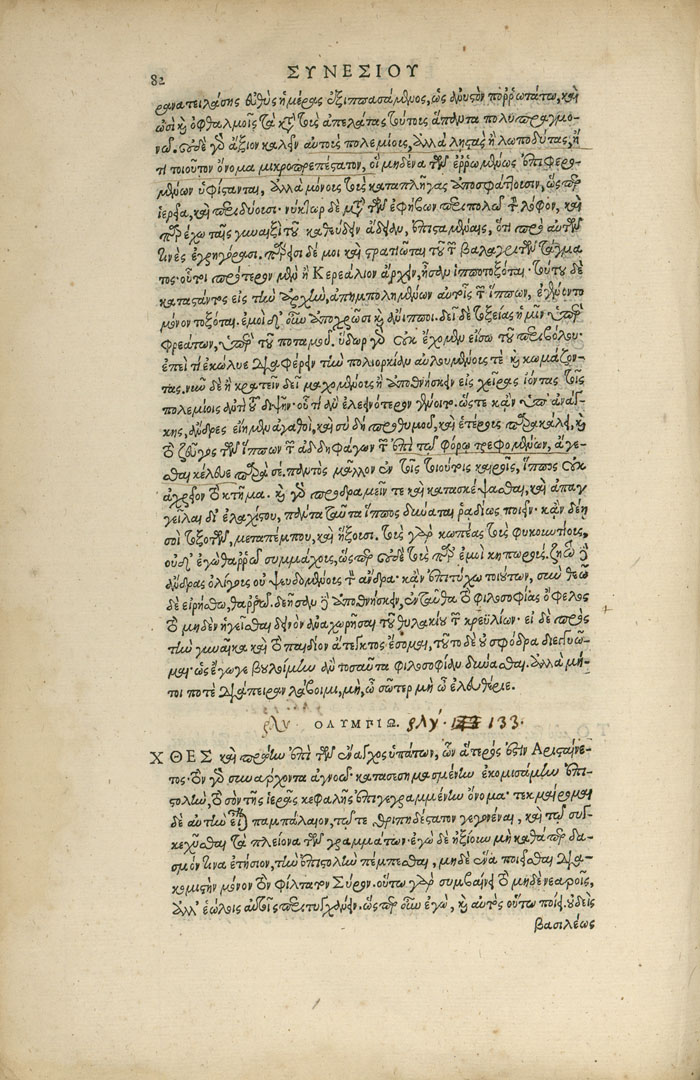 82
ΣΥΝΕΣΙΟΥ
ρανατειλάσης εὐθὺς ἡμέρας ἐξιππασάμενος, ὡς δυνατὸν πορρωτάτω, καὶ
ὠσὶ καὶ ὀφθαλμοῖς τὰ κατὰ τοὺς ἀπελάτας τούτους ἅπαντα πολυπραγμο-
νῶ. οὐδὲ γὰρ ἄξιον καλεῖν αὐτοὺς πολεμίους, ἀλλὰ λῃστὰς ἢ λωποδύτας, ἤ
τι τοιοῦτον ὄνομα μικροπρεπέστατον, οἳ μηδένα τῶν ἐρρωμένως ἐπιφερο-
μένων ὑφίστανται, ἀλλὰ μόνους τοὺς καταπλῆγας ἀποσφάττουσιν, ὥσπερ
ἱερεῖα, καὶ περιδύουσι. νύκτωρ δὲ μετὰ τῶν ἐφήβων περιπολῶ τὸν λόφον, καὶ
παρέχω ταῖς γυναιξὶ τοῦ καθεύδειν ἄδειαν, ἐπισταμέναις, ὅτι πρὸ αὐτῶν
τινὲς ἐγρηγόρασι. πάρεισι δέ μοι καὶ στρατιῶται τοῦ τῶν βαλαγριτῶν τάγμα
τος. οὗτοι πρότερον μὲν ἢ Κερεάλιον ἄρχειν, ἦσαν ἱπποτοξόται. τούτου δὲ
καταστάντος εἰς τὴν ἀρχὴν, ἀπημπολημένων αὐτοῖς τῶν ἵππων, ἐγένοντο
μόνον τοξόται. ἐμοὶ δ' οὖν ἀποχρῶσι καὶ ἄνιπποι. δεῖ δὲ τοξείας ἡμῖν ὑπὲρ
φρεάτων, ὑπὲρ τοῦ ποταμοῦ. ὕδωρ γὰρ οὐκ ἔχομεν εἴσω τοῦ περιβόλου.
ἐπεὶ τί ἐκώλυε διαφέρειν τὴν πολιορκίαν αὐλουμένους τε καὶ κωμάζον-
τας. νῦν δὲ ἢ κρατεῖν δεῖ μαχομένους ἢ ἀποθνήσκειν εἰς χεῖρας ἰόντας τοῖς
πολεμίοις ἀντὶ τοῦ διψῆν. οὗ τί ἂν ἐλεεινότερον γένοιτο. ὥστε κἂν ὑπ' ἀνάγ-
κης, ἄνδρες εἴημεν ἀγαθοί, καὶ σὺ δὴ προθυμοῦ, καὶ ἑτέρους παρακάλει, καὶ
τὸ ζεῦγος τῶν ἵππων τῶν ἀδδηφάγων τῶν ἐπὶ τῷ φόρῳ τρεφομένων, ἄγε-
σθαι κέλευε παρὰ σέ. παντὸς μᾶλλον ἐν τοῖς τοιούτοις καιροῖς, ἵππος οὐκ
ἀχρεῖον τὸ κτῆμα. καὶ γὰρ προδραμεῖν τε καὶ κατασκέψασθαι, καὶ ἀπαγ
γεῖλαι δι' ἐλαχίστου, πάντα ταῦτα ἵππος δύναται ῥᾳδίως ποιεῖν. κἂν δέῃ
σοι τοξοτῶν, μεταπέμπου, καὶ ἥξουσι. τοῖς γὰρ κωπέας τοὺς φυκουντίους,
οὐδ' ἐγὼ θαρρῶ συμμάχοις, ὥσπερ οὐδὲ τοῖς παρ' ἐμοὶ κηπωροῖς. ζητῶ γὰρ
ἄνδρας ὀλίγους οὐ ψευδομένους τὸν ἄνδρα. κἂν ἐπιτύχω τοιούτων, σὺν θεῷ
δὲ εἰρήσθω, θαρρῶ. δεῆσαν γὰρ ἀποθνήσκειν, ἐνταῦθα τὸ φιλοσοφίας ὄφελος
τὸ μηδὲν ἡγεῖσθαι δεινὸν ἀναχωρῆσαι τοῦ θυλακίου τῶν κρεϋλίων. εἰ δὲ πρὸς
τὴν γυναῖκα καὶ τὸ παιδίον ἄτεγκτος ἔσομαι, τοῦτο δὲ οὐ σφόδρα διεγγυῶ-
μαι. ὡς ἔγωγε βουλοίμην ἂν τοσαῦτα φιλοσοφίαν δύνασθαι. ἀλλὰ μή-
τοι ποτὲ διὰ πεῖραν λάβοιμι, μή, ὦ σῶτερ μὴ ὦ ἐλευθέριε.
ρλγ. ΟΛΥΜΠΙΩ. ρλγ. 133.
ΧΘΕΣ καὶ πρώην ἐπὶ τῶν ἔναγχος ὑπάτων, ὧν ἅτερός ἐστιν Ἀρισταίνε-
τος. τὸν γὰρ συνάρχοντα ἀγνοῶ. κατασεσημασμένην ἐκομισάμην ἐπι-
στολὴν, τὸ σὸν τῆς ἱερᾶς κεφαλῆς ἐπιγεγραμμένην ὄνομα. τεκμαίρομαι
δὲ αὐτὴν εἶναι παμπάλαιον, τῷ τε θριπηδέστατον γεγονέναι, καὶ τῷ συγ-
κεχῦσθαι τὰ πλείονα τῶν γραμμάτων. ἐγὼ δὲ ἠξίουν μὴ καθάπερ δα-
σμόν τινα ἐτήσιον, τὴν ἐπιστολὴν πέμπεσθαι, μηδὲ ἕνα ποιεῖσθαι δια-
κομιστὴν μόνον τὸν φίλτατον Σύρον. οὕτω γὰρ συμβαίνει τὸ μηδὲ νεαροῖς,
ἀλλ' ἑώλοις αὐτοῖς περιτυγχάνειν. ὥσπερ οὖν ἐγὼ, καὶ αὐτὸς οὕτω ποίει. οὐδεὶς
βασιλέως